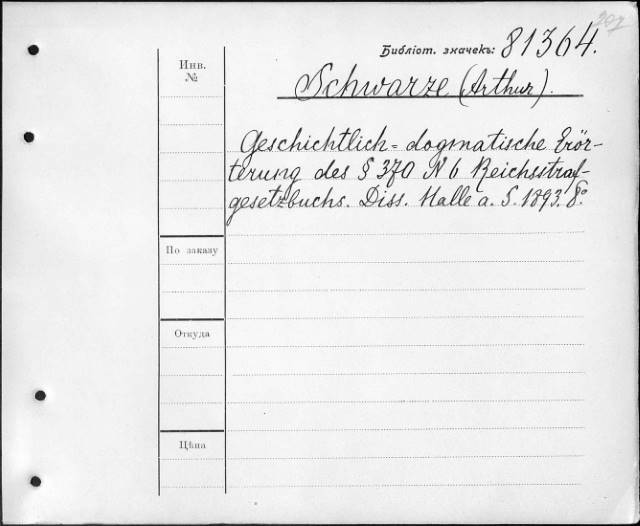 207
Библіот. значекъ: 81364.
Инв.
№
Schwarze (Arthur).
Geschichtlich=dogmatische Erör-
terung des § 370 N 6 Reichsstraf-
gesetzbuchs. Diss. Halle a. S. 1893. 8°.
По заказу
Откуда
Цѣна